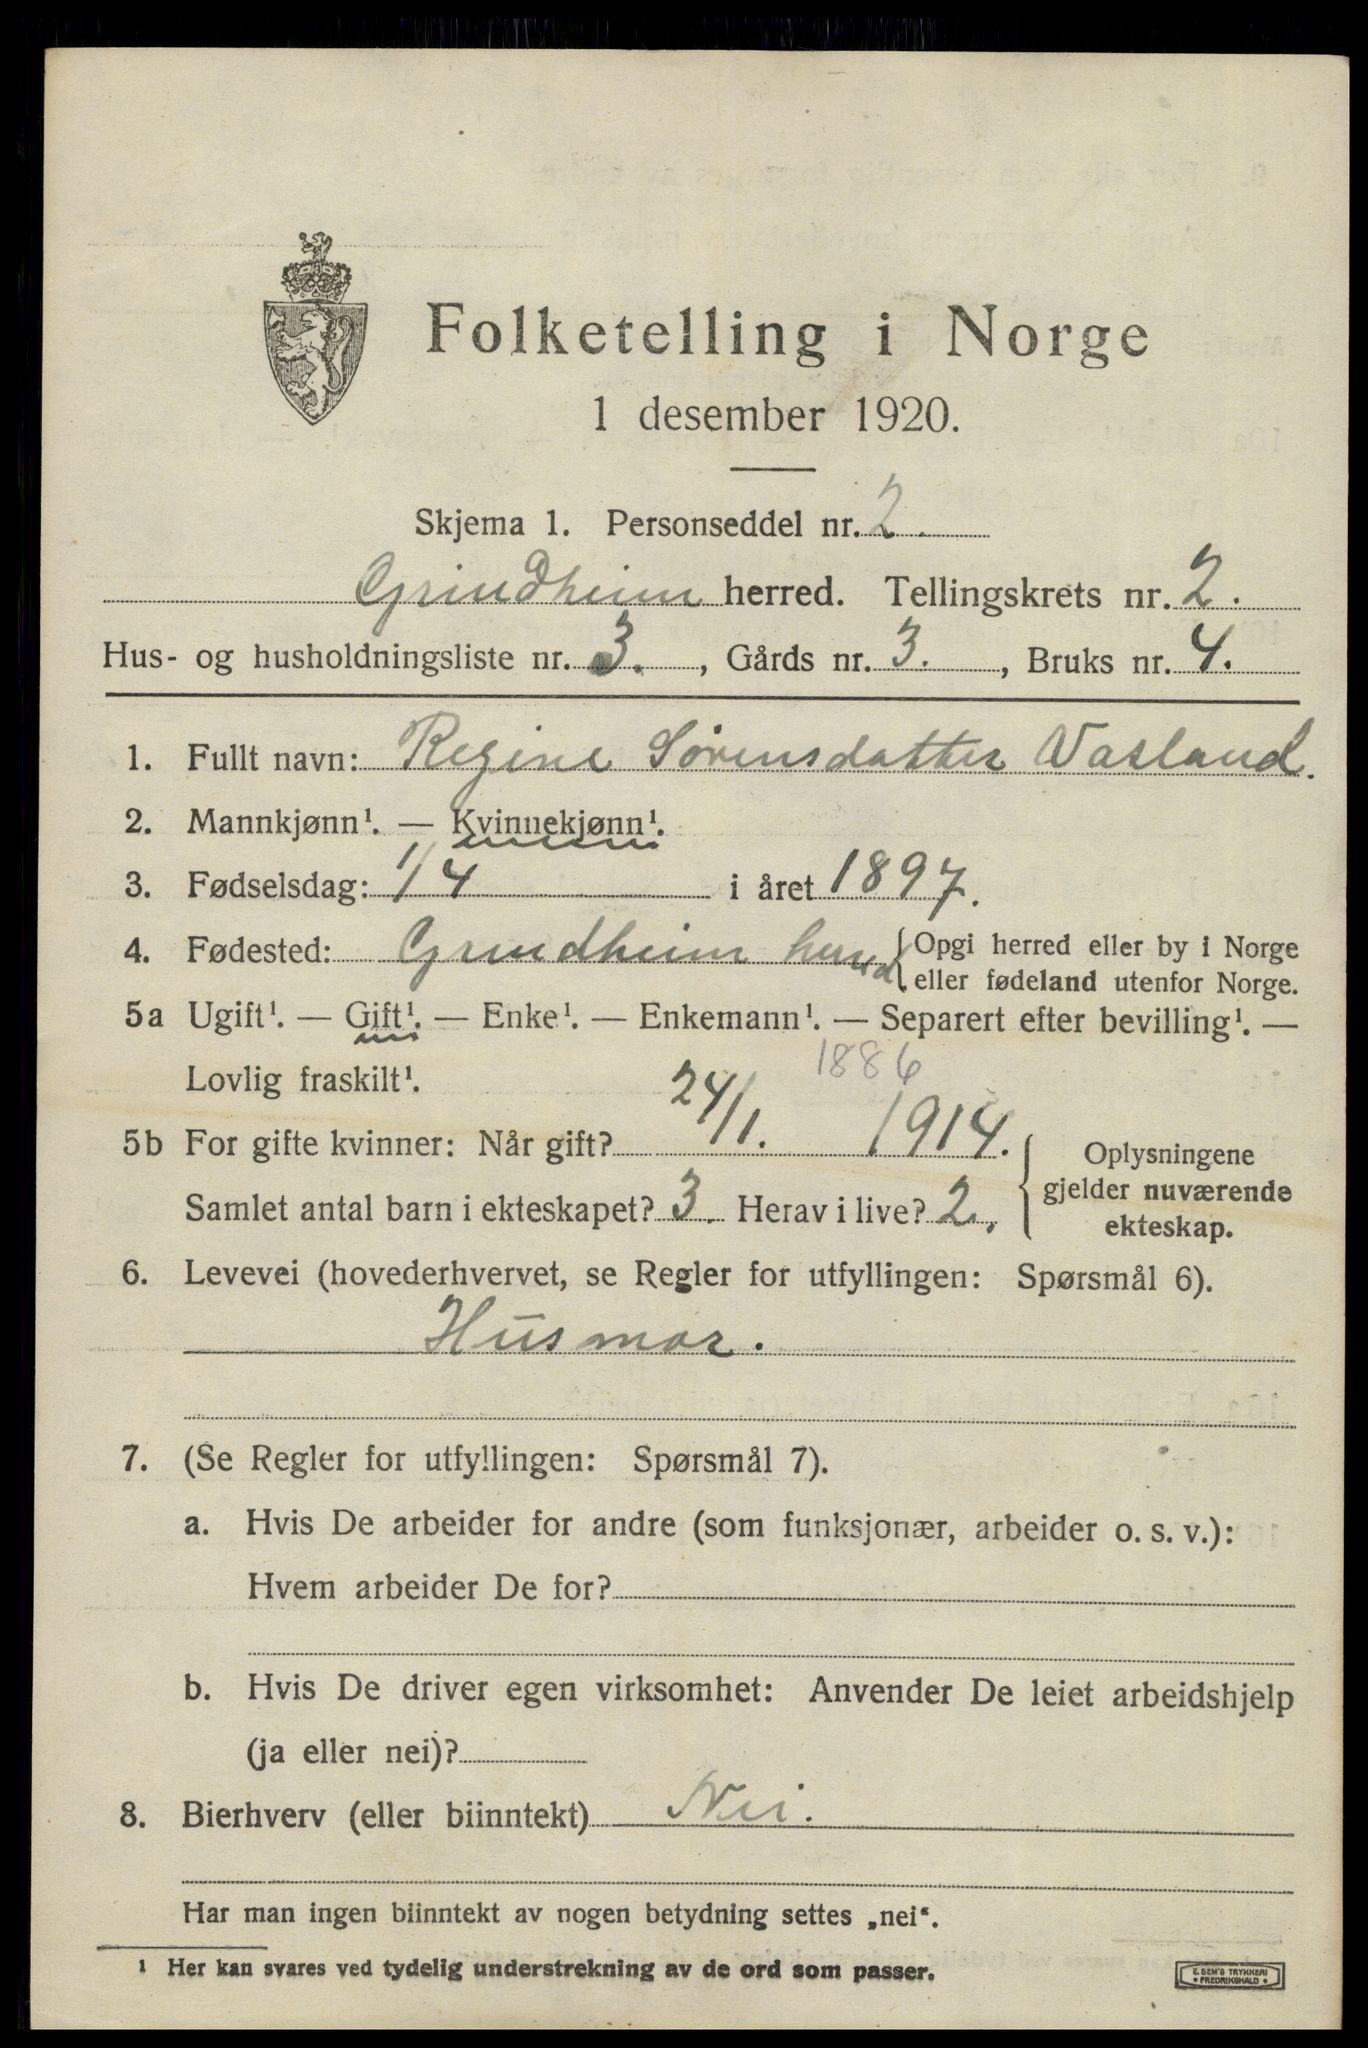 Folketelling i Norge
1 desember 1920.
Skjema 1. Personseddel nr. 2.
Grindheim herred. Tellingskrets nr. 2.
Hus- og husholdningsliste nr. 3., Gårds nr. 3., Bruks nr. 4.
1. Fullt navn: Regine Sørensdatter Vasland.
2. Mannkjønn¹. — Kvinnekjønn¹.
3. Fødselsdag: 1/4 i året 1897.
4. Fødested: Grindheim herred { Opgi herred eller by i Norge
eller fødeland utenfor Norge.
5a Ugift¹. — Gift¹. — Enke¹. — Enkemann¹. — Separert efter bevilling¹. —
Lovlig fraskilt¹. 1886
5b For gifte kvinner: Når gift? 24/1. 1914.
Samlet antal barn i ekteskapet? 3. Herav i live? 2.
Oplysningene
gjelder nuværende
ekteskap.
6. Levevei (hovederhvervet, se Regler for utfyllingen: Spørsmål 6).
Husmor.
7. (Se Regler for utfyllingen: Spørsmål 7).
a. Hvis De arbeider for andre (som funksjonær, arbeider o. s. v.):
Hvem arbeider De for?
b. Hvis De driver egen virksomhet: Anvender De leiet arbeidshjelp
(ja eller nei)?
8. Bierhverv (eller biinntekt) Nei.
Har man ingen biinntekt av nogen betydning settes „nei“.
¹ Her kan svares ved tydelig understrekning av de ord som passer.
E. SEM'S TRYKKERI
• FREDRIKSHALD •